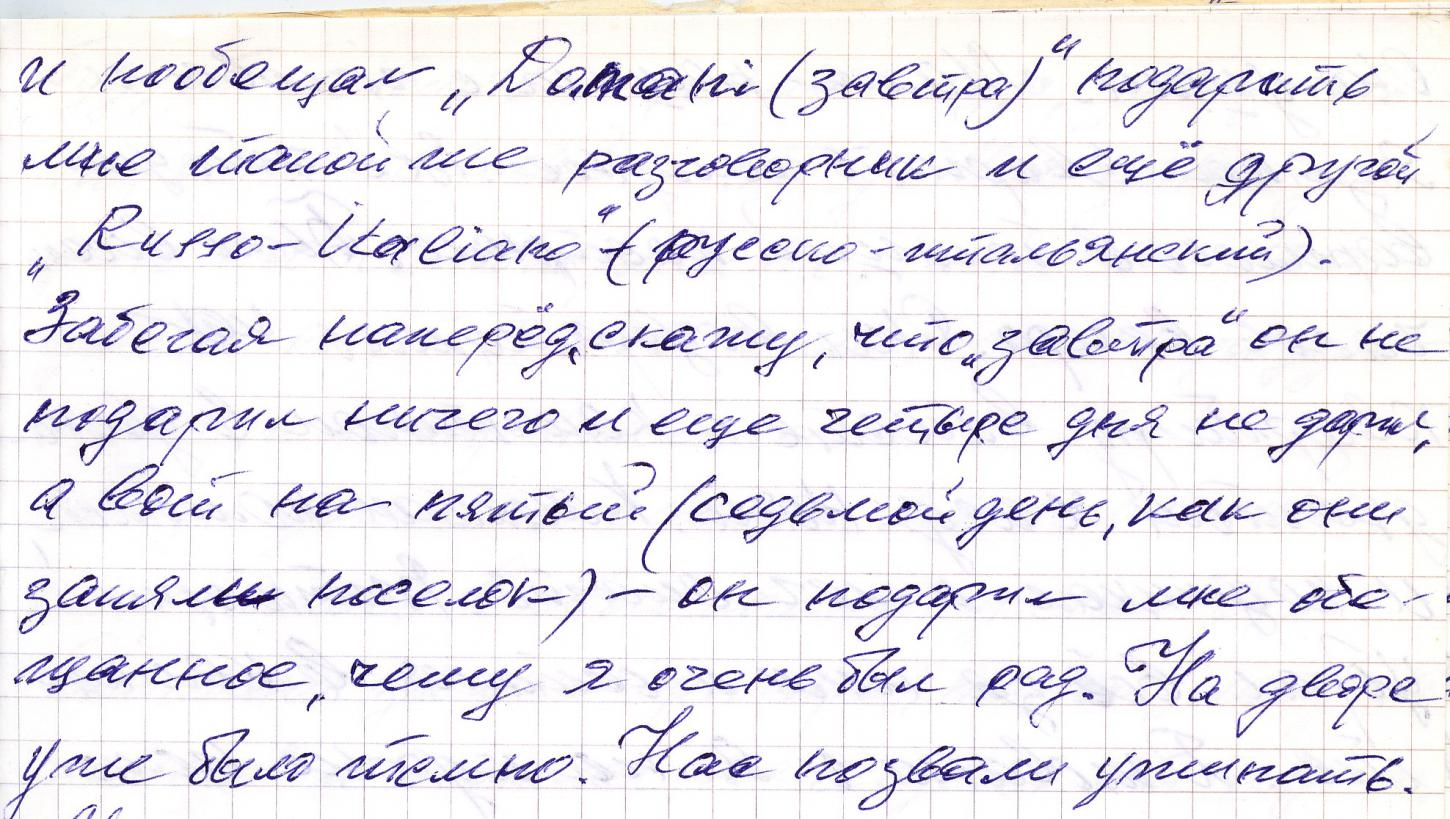 и пообещал „Domani (завтра)“ подарить
мне такой же разговорник и ещё другой
„Russo-Italiano“ (русско-итальянский).
Забегая наперёд, скажу, что „завтра“ он не
подарил ничего и еще четыре дня не дарил,
а вот на пятый (седьмой день, как они
заняли поселок) – он подарил мне обе-
щанное, чему я очень был рад. На дворе
уже было темно. Нас позвали ужинать.